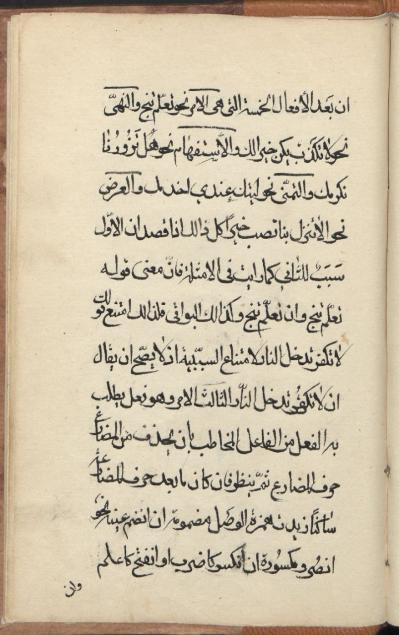 ان بعد الافعال الخمسة التى هى الامر نحو تعلّم تنج والنهى
نحو لا تكذب يكن خيرا لك والاستفهام نحو هل تزورنا
نكرمك والتمنّى نحو ليتك عندى اخدمك والعرض
نحو الا تنزل بنا تصب خيرا كل ذلك اذا قصد ان الاوّل
سبب للثانى كما رايت فى الامثلة فانّ معنى قوله
تعلّم تنج وان تعلّم تنج وكذلك البواقى فلذلك امتنع قولك
لا تكفر تدخل النار لامتناع السببية اذ لا يصحّ ان يقال
ان لا تكفر تدخل النار والثالث الامر وهو فعل يطلب
به الفعل من الفاعل المخاطب بان يحذف من المضارع
حرف المضارع ثمّ ينظر فان كان ما بعد حرف المضارع
ساكنا زيدت همزة الوصل مضمومة ان انضم عينه نحو
انصر ومكسورة ان انكسر كاضرب او انفتح كاعلم
وان